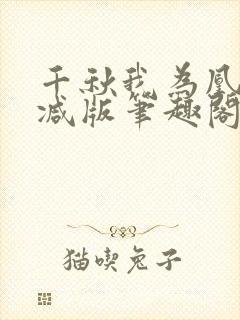 千秋我为凰
减版笔趣阁
猫喫兔子